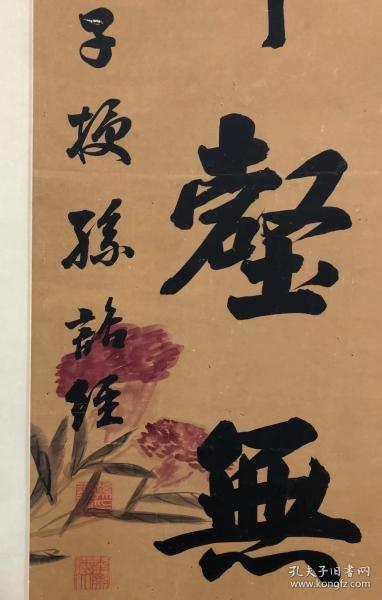 壑無
子授孫詒經
孔夫子旧书网